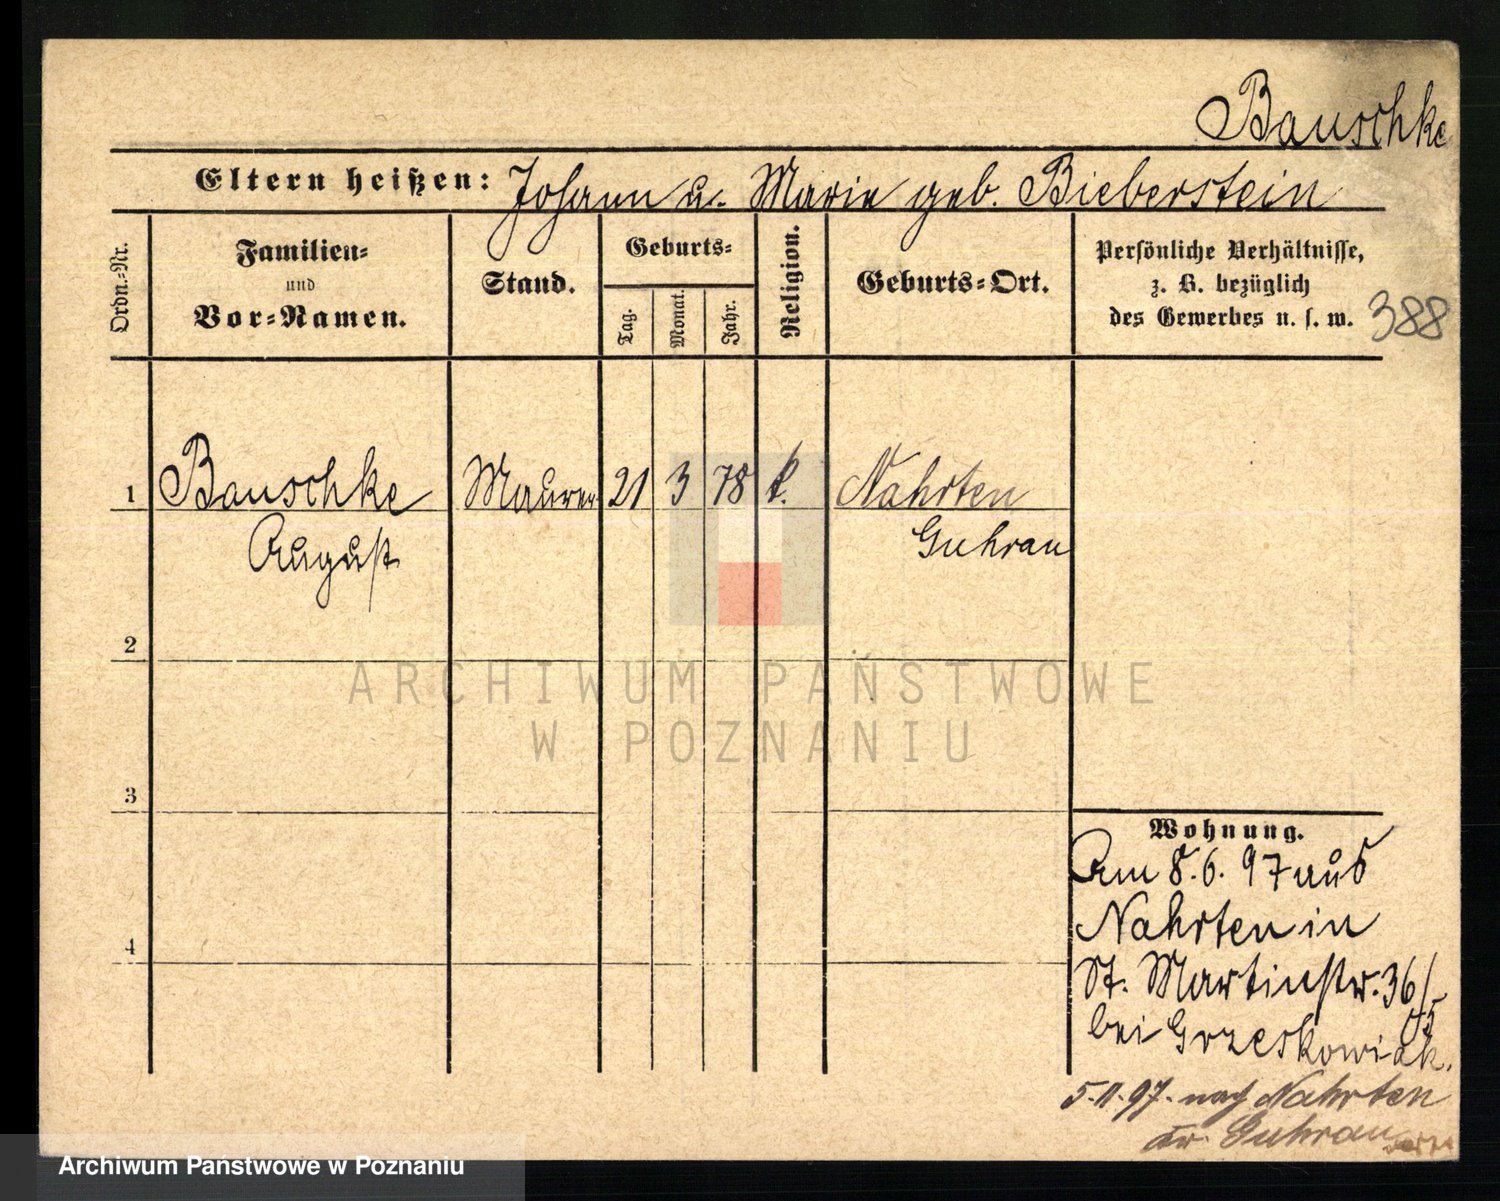 Bauschke
Eltern heißen: Johann u. Marie geb. Bieberstein
Ordn.-Nr.
Familien-
und
Vor-Namen.
Stand.
Geburts-
Tag.
Monat.
Jahr.
Religion.
Geburts-Ort.
Persönliche Verhältnisse,
z. B. bezüglich
des Gewerbes u. s. w.
388
1 Bauschke Maurer 21 3 78 k. Nahrten
August Guhrau
2
3
4
ARCHIWUM PAŃSTWOWE
W POZNANIU
Wohnung.
Am 8.6.97 aus
Nahrten in
St. Martinstr. 36/
bei Grzeskowiak.
5.11.97. nach Nahrten
Kr. Guhrau
Archiwum Państwowe w Poznaniu